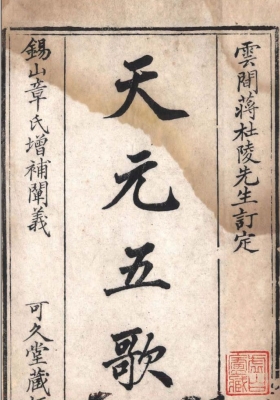 雲間蔣杜陵先生訂定
天元五歌
錫山章氏增補闡義
可久堂藏